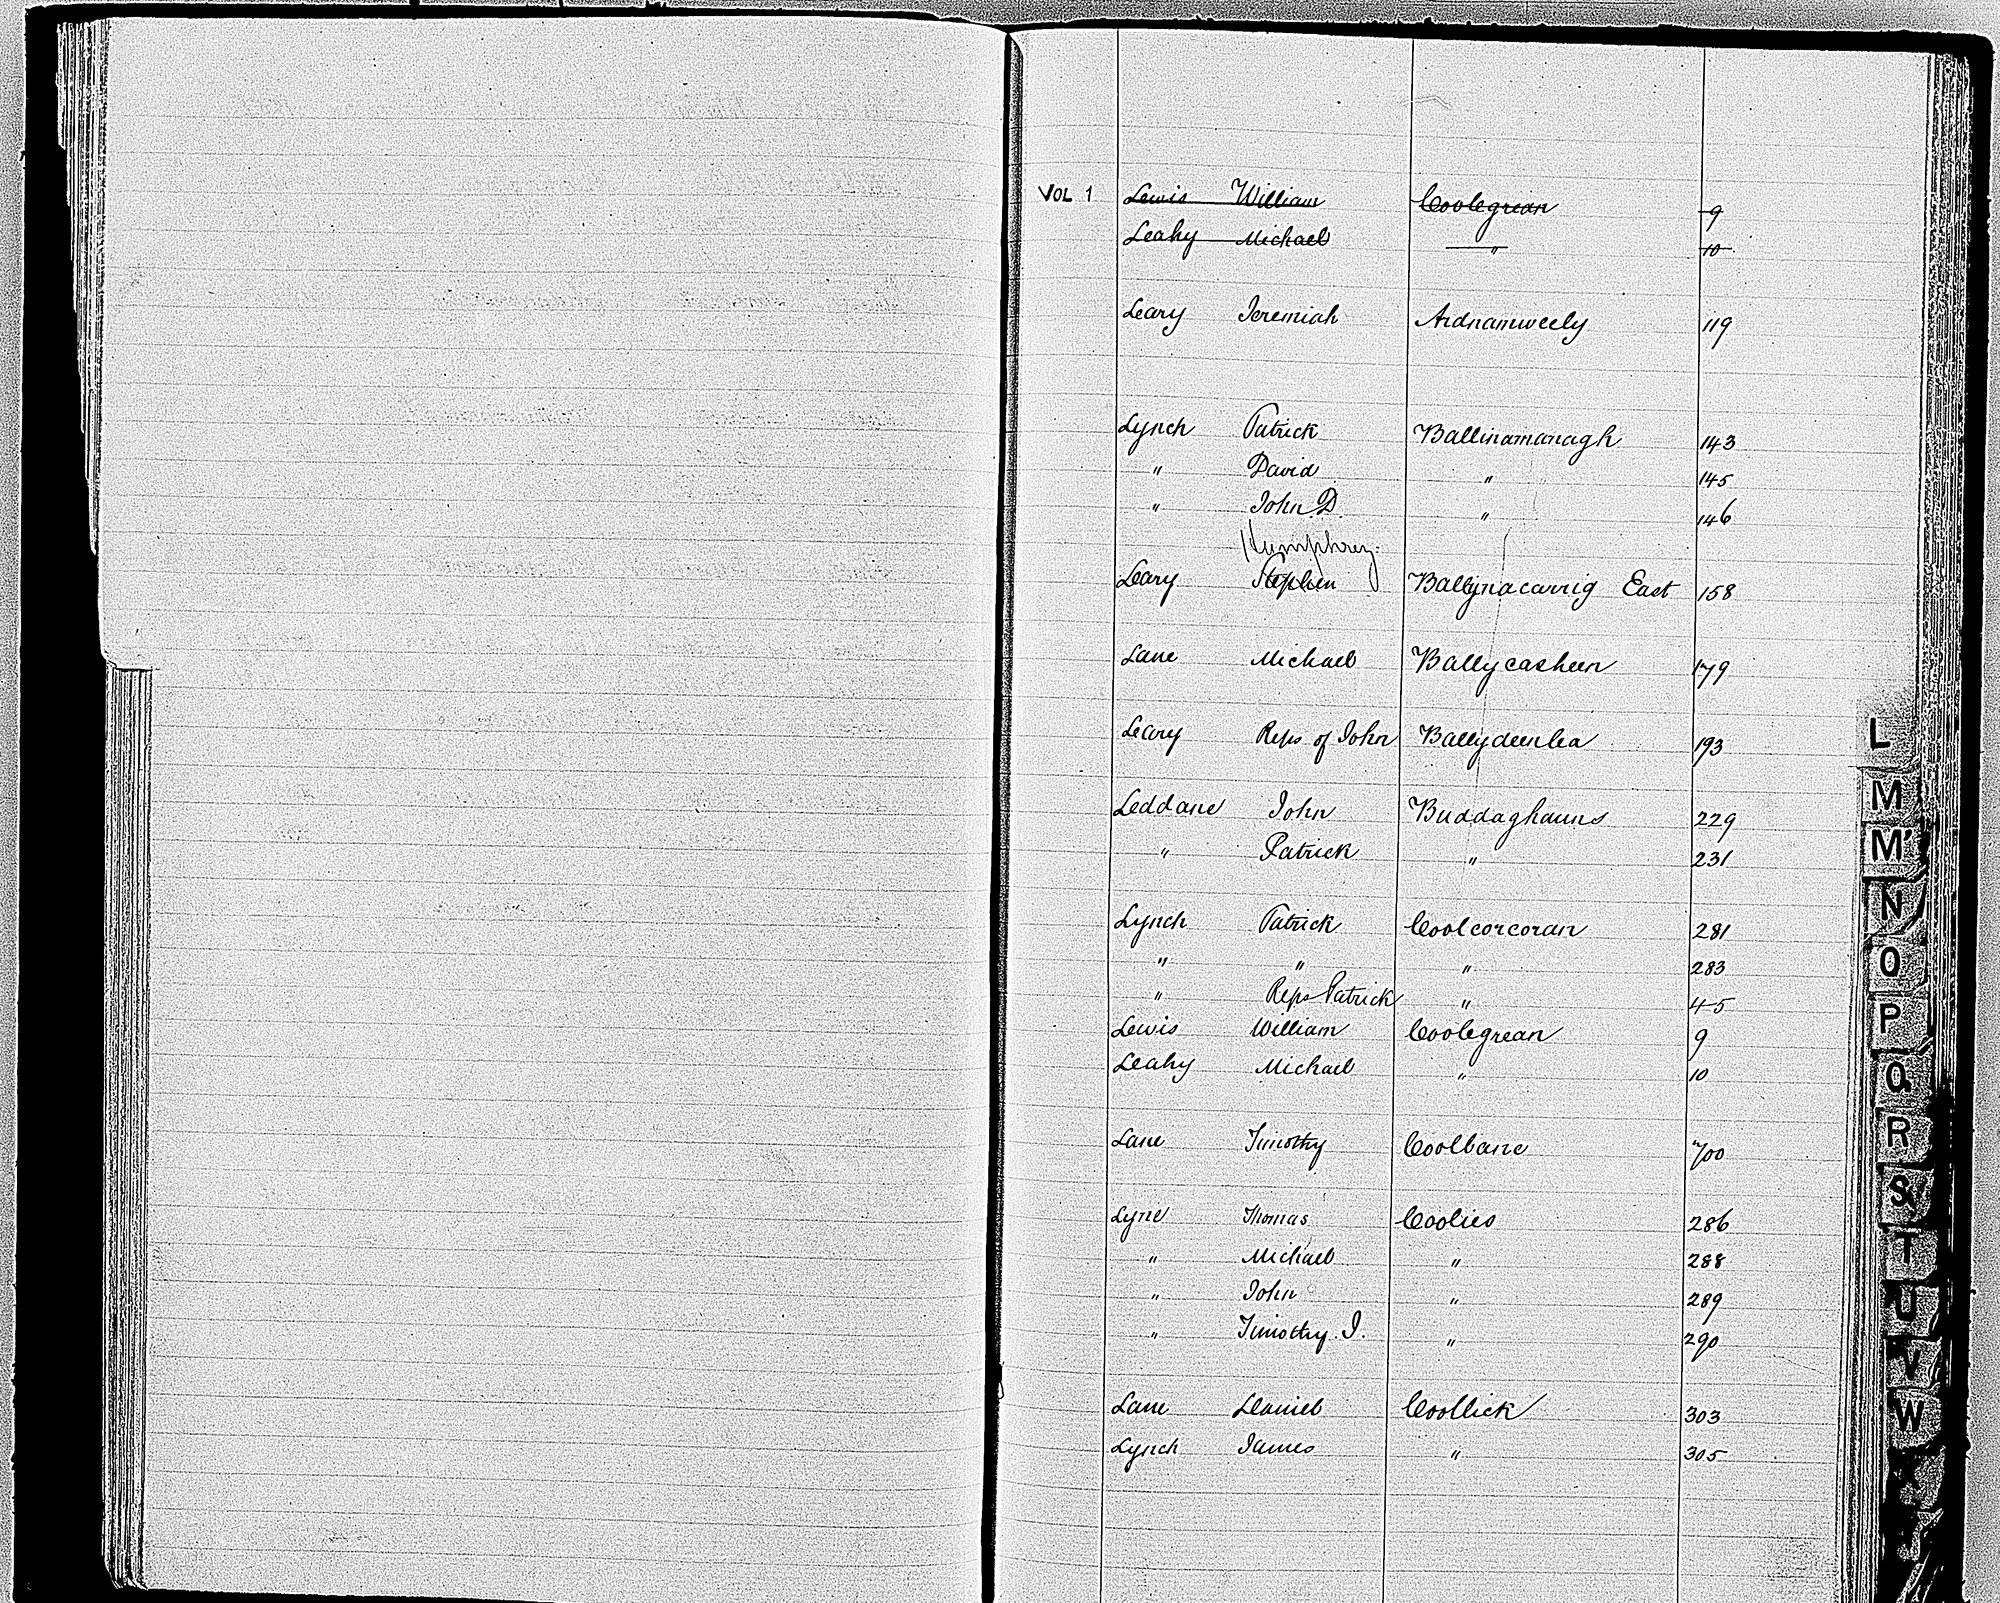 VOL 1 Lewis William Coolegrean 9
Leahy Michael " 10
Leary Jeremiah Ardnamweely 119
Lynch Patrick Ballinamanagh 143
" David " 145
" John D. " 146
Humphrey
Leary Stephen Ballynacarrig East 158
Lane Michael Ballycasheen 179
Leary Reps of John Ballydeenlea 193
Leddane John Buddaghauns 229
" Patrick " 231
Lynch Patrick Coolcorcoran 281
" " " 283
" Reps Patrick " 45
Lewis William Coolegrean 9
Leahy Michael " 10
Lane Timothy Coolbane 700
Lyne Thomas Coolies 286
" Michael " 288
" John " 289
" Timothy J. " 290
Lane Daniel Coollick 303
Lynch James " 305
L
M
M'
N
O
P
Q
R
S
T
U
V
W